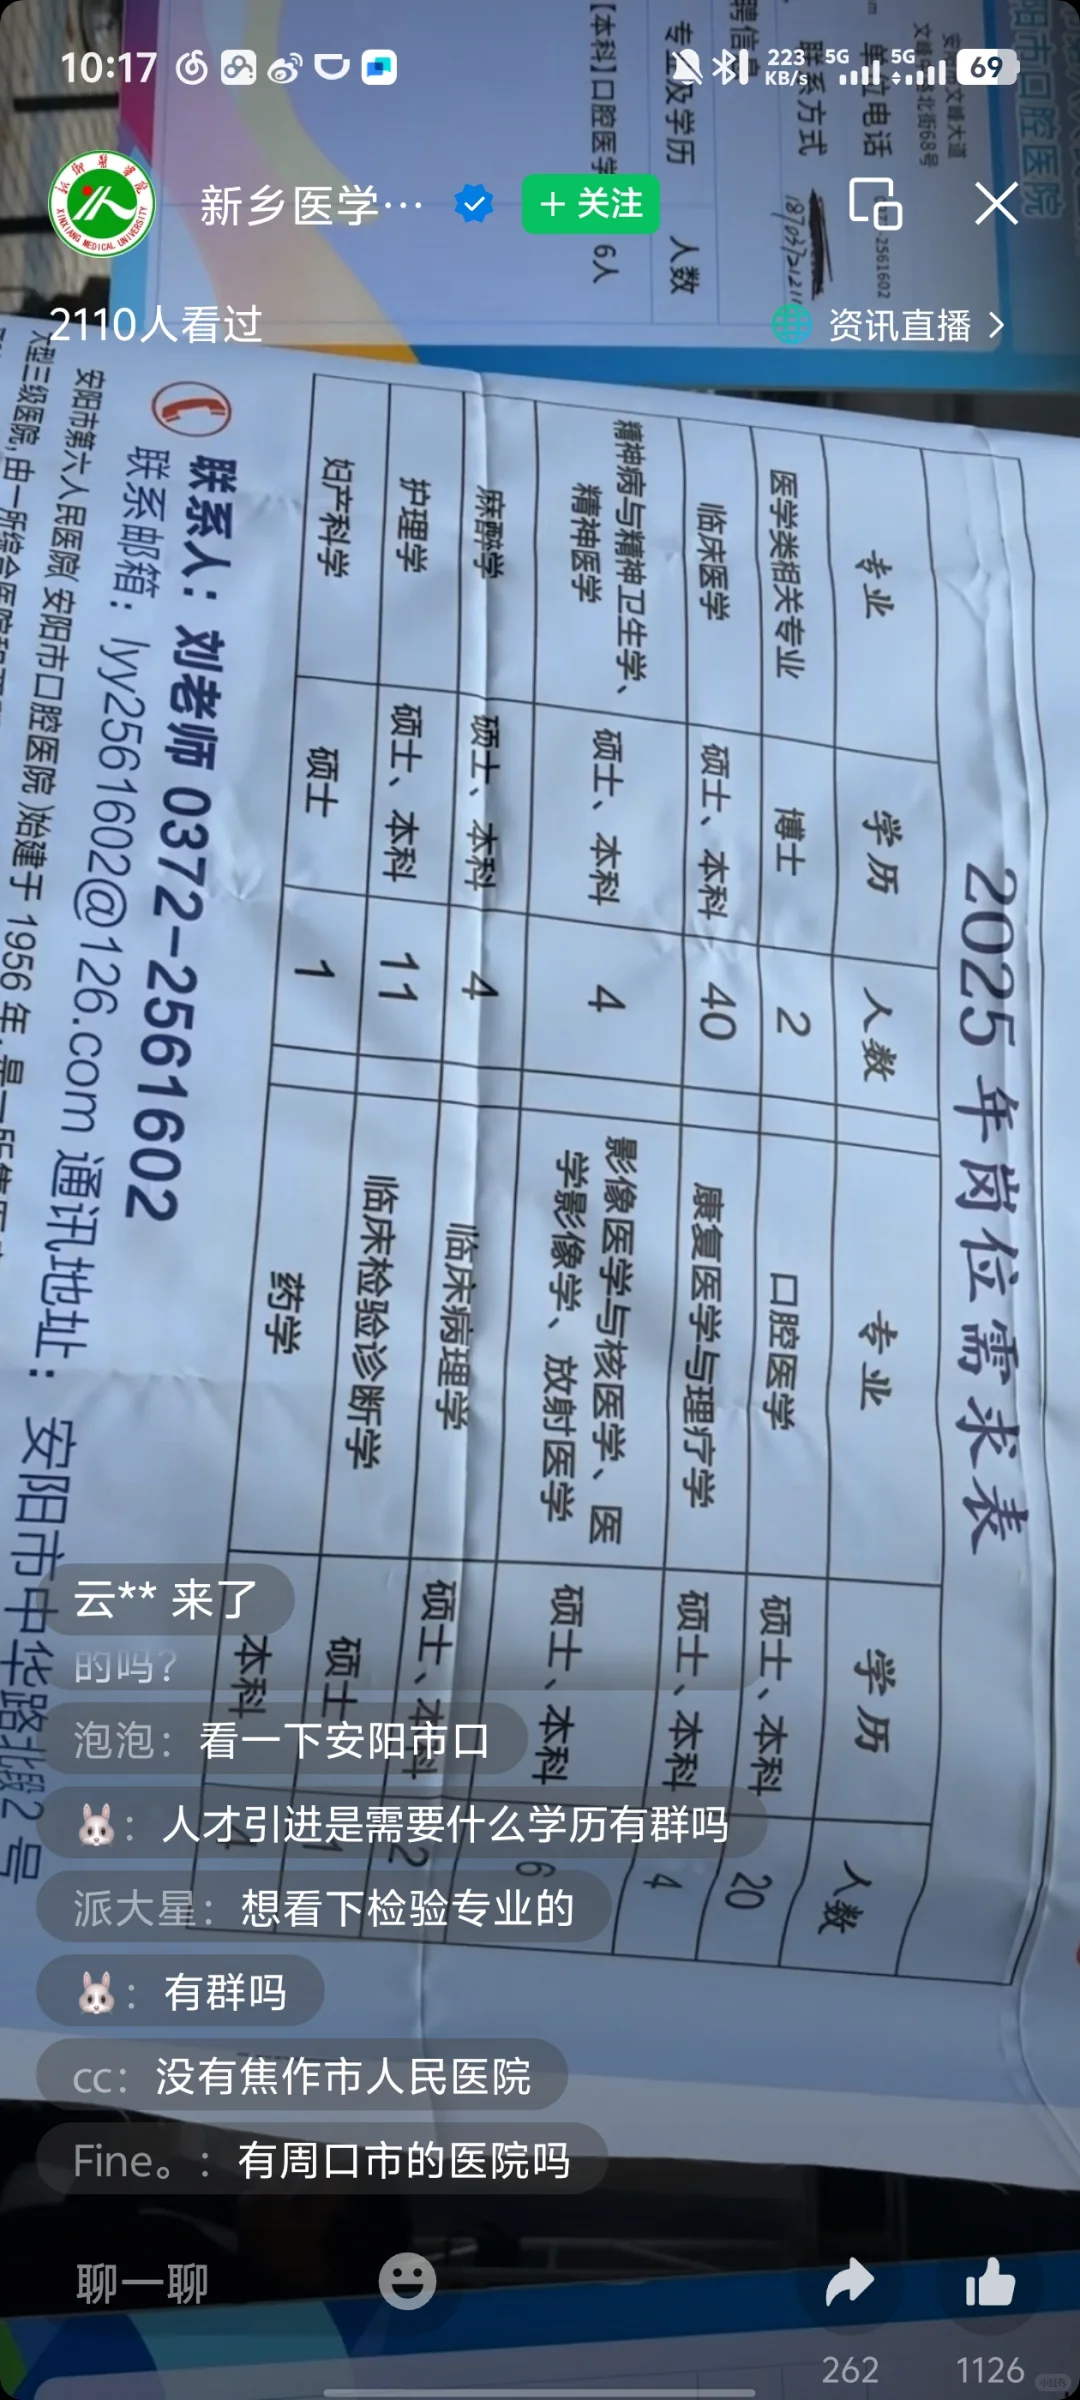 10:17
223 KB/s
5G
5G
69
新乡医学…
+ 关注
2110人看过
资讯直播 >
XINXIANG MEDICAL UNIVERSITY
阳市口腔医院
文峰大道
北街68号
单位电话
2561602
联系方式
聘信
专业及学历
人数
【本科】口腔医学
6人
2025年岗位需求表
专业 学历 人数 专业 学历 人数
医学类相关专业 博士 2 口腔医学 硕士、本科 20
临床医学 硕士、本科 40 康复医学与理疗学 硕士、本科 4
精神病与精神卫生学、精神医学 硕士、本科 4 影像医学与核医学、医学影像学、放射医学 硕士、本科 6
麻醉学 硕士、本科 4 临床病理学 硕士、本科 2
护理学 硕士、本科 11 临床检验诊断学 硕士 1
妇产科学 硕士 1 药学 本科 4
联系人：刘老师 0372-2561602
联系邮箱：lyy2561602@126.com 通讯地址：安阳市中华路北段2号
安阳市第六人民医院(安阳市口腔医院)始建于1956年,是一所集医
大型三级医院,由一所综合医院和
云** 来了
的吗?
泡泡：看一下安阳市口
🐰：人才引进是需要什么学历有群吗
派大星：想看下检验专业的
🐰：有群吗
cc：没有焦作市人民医院
Fine。：有周口市的医院吗
聊一聊
262
1126
小红书